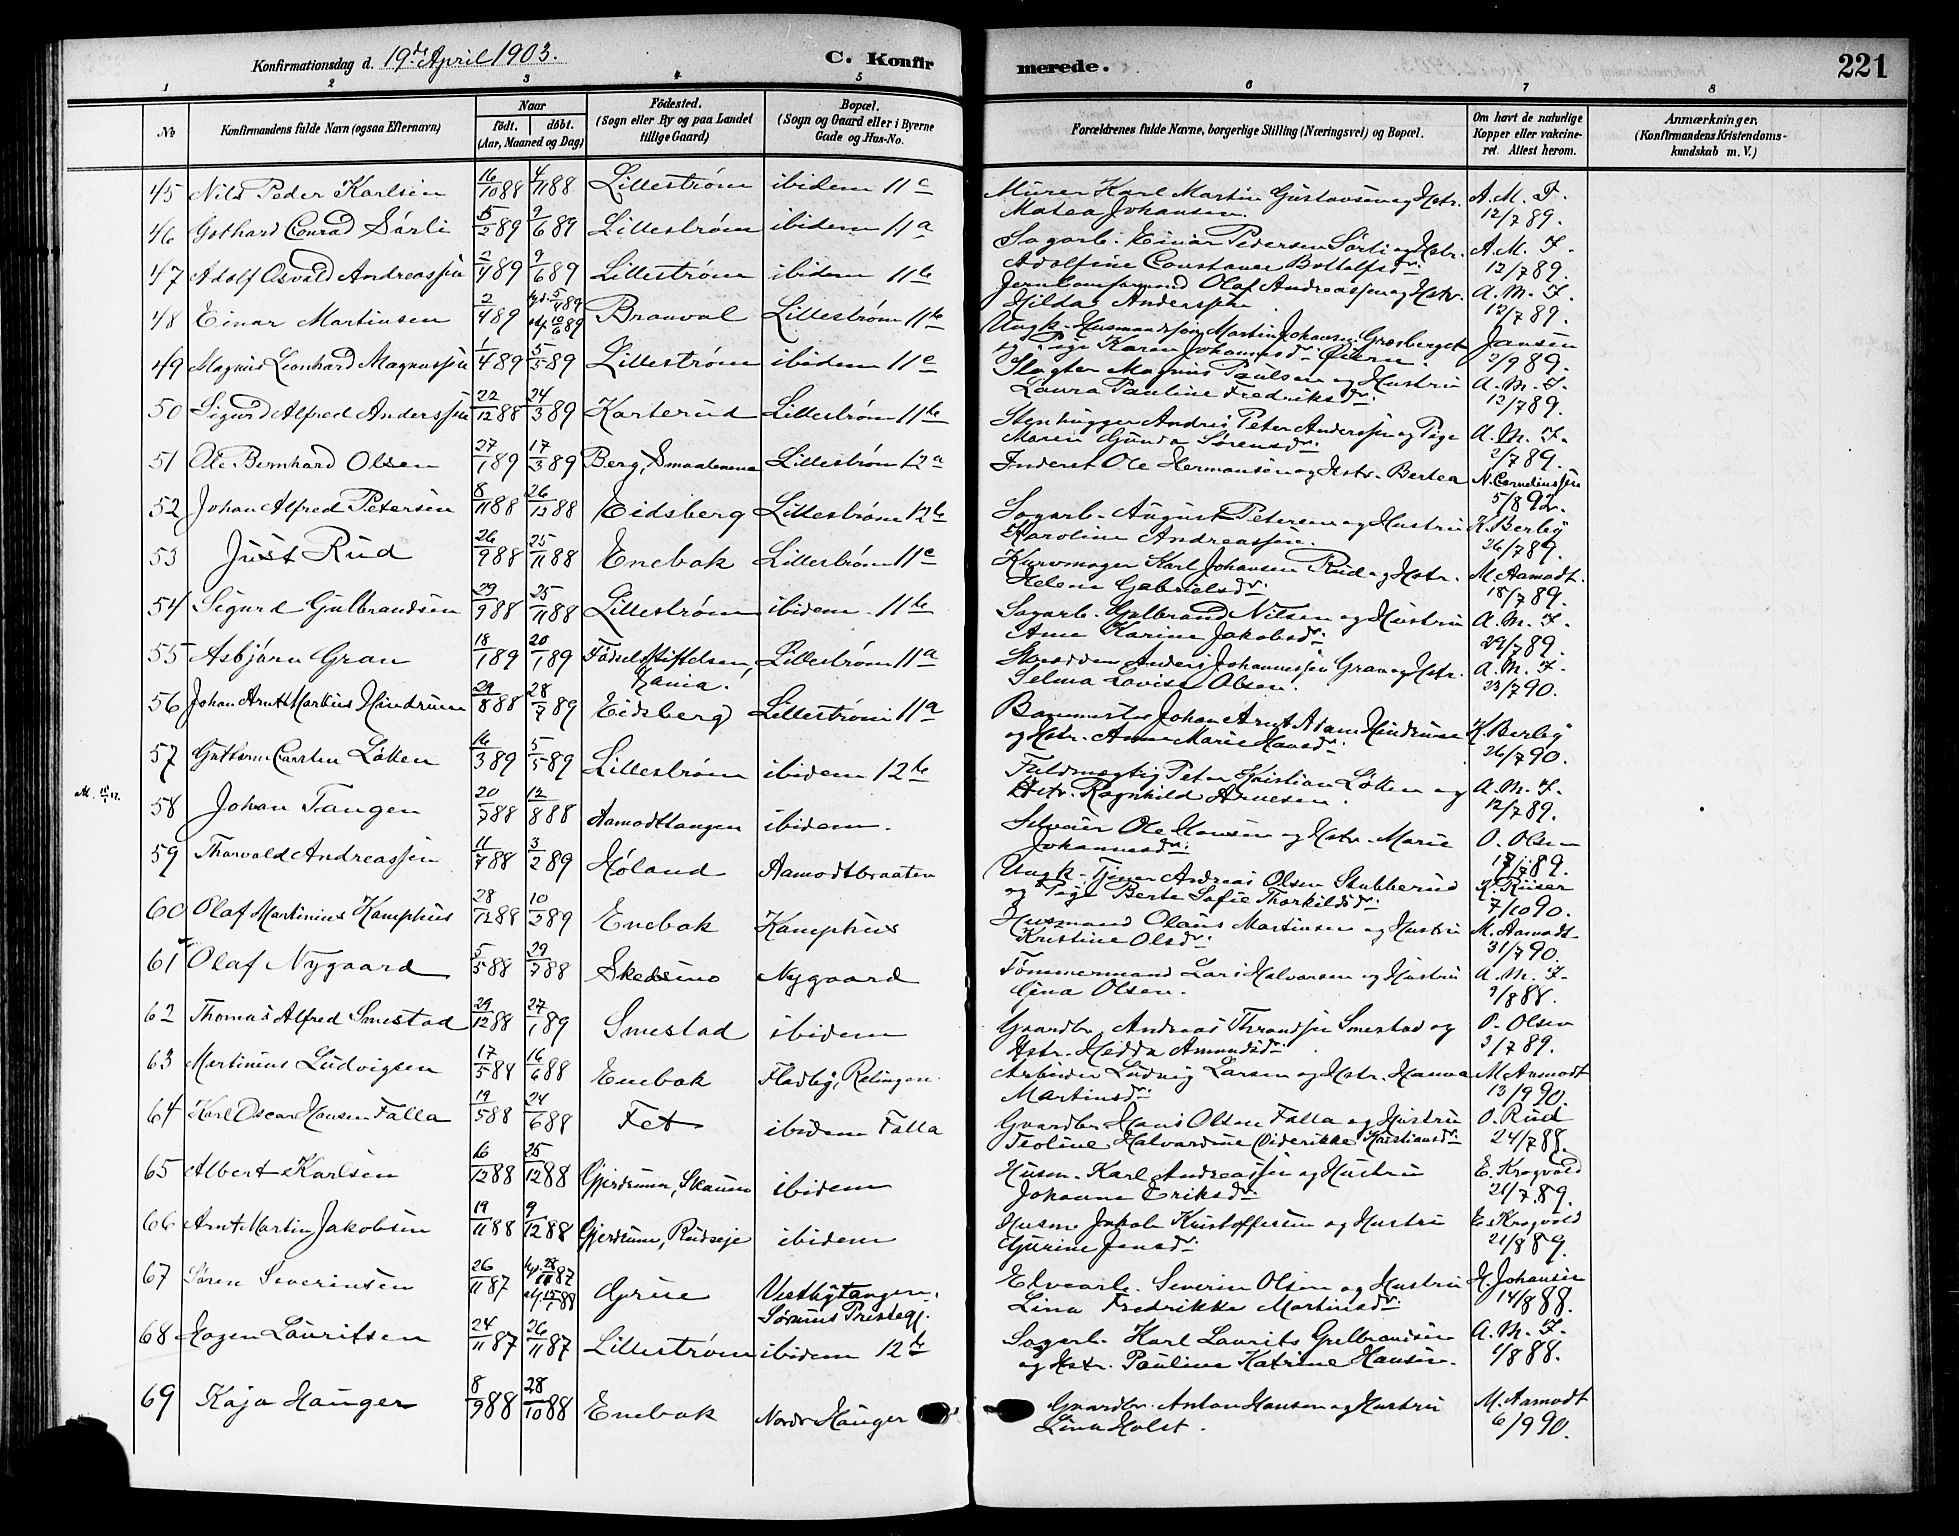 Konfirmationsdag d. 19de April 1903. C. Konfirmerede. 221
1 2 3 4 5 6 7 8
No
Konfirmandens fulde Navn (ogsaa Efternavn)
Naar
født. døbt.
(Aar, Maaned og Dag)
Fødested.
(Sogn eller By og paa Landet tillige Gaard)
Bopæl.
(Sogn og Gaard eller i Byerne Gade og Hus-No.
Forældrenes fulde Navne, borgerlige Stilling (Næringsvei) og Bopæl.
Om havt de naturlige Kopper eller vakcineret. Attest herom.
Anmærkninger,
(Konfirmandens Kristendomskundskab m. V.)
45 Nils Peder Karlsen 16/10 88 4/11 88 Lillestrøm ibidem 11c Murer Karl Martin Gustavsen og Hstr. A. M. F.
Matea Johansen. 12/7 89.
46 Gothard Conrad Sørli 5/2 89 9/6 89 Lillestrøm ibidem 11a Sagarb. Einar Pedersen Sørli og Hstr. A. M. F.
Adolfine Constance Bottolfsdr. 12/7 89.
47 Adolf Osvald Andreassen 2/4 89 9/6 89 Lillestrøm ibidem 11b Olaf Andreassen og Hstr. A. M. F.
Hilda Anderssen 12/7 89.
48 Einar Martinsen 2/4 89 hjd. 5/4 89 Lillestrøm 11b Ungk. Martin Johansen og Jansen
10/6 89 Pige Karen Johannesdr. 2/9 89.
49 Magnus Leonhard Magnussen 1/4 89 5/5 89 Lillestrøm ibidem 11c Slagter Magnus Paulsen og Hustru A. M. F.
Laura Pauline Fredriksdr. 12/7 89.
50 Sigurd Alfred Anderssen 22/12 88 24/3 89 Karterud Lillestrøm 11b Stenhugger Andres Peter Anderssen og Pige A. M. F.
Maren Gunda Sørensdr. 2/7 89.
51 Ole Bernhard Olsen 27/1 89 17/3 89 Berg, Smaalenene Lillestrøm 12a Inderst Ole Hermansen og Hstr. Bertea N. Corneliussen
5/8 92.
52 Johan Alfred Petersen 8/11 88 26/12 88 Eidsberg Lillestrøm 12b Sagarb. August Petersen og Hustru K. Berby
Karoline Andreassen. 26/7 89.
53 Just Rud 26/9 88 25/11 88 Enebak Lillestrøm 11c Kurvmager Karl Johansen Rud og Hstr. M. Aamodt.
Helene Gabrielsdr. 18/7 89.
54 Sigurd Gulbrandsen 29/9 88 25/11 88 Lillestrøm ibidem 11b Sagarb. Gulbrand Nilsen og Hustru A. M. F.
Ane Karine Jakobsdr. 29/7 89.
55 Asbjørn Gran 18/1 89 20/1 89 Fødselsstiftelsen, Lillestrøm 11a Skrædder Anders Johannessen Gran og Hstr. A. M. F.
Xania. Selma Lovise Olsen. 23/7 90.
56 Johan Arnt Markus Hindrum 29/8 88 28/7 89 Eidsberg Lillestrøm 11a Banemester Johan Arnt Adam Hindrum K. Berby
og Hstr. Anne Marie Hansdr. 26/7 90.
57 Guttorm Carsten Løken 16/3 89 5/5 89 Lillestrøm ibidem 12b Fuldmægtig Peter Kristian Løken og A. M. F.
Hstr. Ragnhild Arnesen. 12/7 89.
58 Johan Tangen 20/7 88 12/8 88 Aamodttangen ibidem. Selveier Ole Hansen og Hstr. Marie O. Olsen
Johannesdr. 17/7 89.
59 Thorvald Andreassen 11/7 88 3/2 89 Høland Aamodtbraaten Ungk. Tjener Andreas Olsen Stubberud K. Riiser
og Pige Berte Sofie Thorkildsdr. 7/10 90.
60 Olaf Martinius Kamphus 28/12 88 10/2 89 Enebak Kamphus Husmand Olaus Martinsen og Hustru M. Aamodt
Kristine Olsdr. 31/7 90.
61 Olaf Nygaard 5/5 88 29/7 88 Skedsmo Nygaard Tømmermand Lars Halvorsen og Hustru A. M. F.
Gina Olsen. 9/8 88.
62 Thomas Alfred Smestad 29/12 88 27/1 89 Smestad ibidem Gaardbr. Andreas Throndsen Smestad og O. Olsen
Hstr. Hedda Amundsdr. 3/7 89.
63 Martinius Ludvigsen 17/5 84 16/6 88 Enebak Fladby, Relingen. Arbeider Ludvig Larsen og Hstr. Hanna M. Aamodt
Martinsdr. 13/9 90.
64 Karl Oscar Hansen Falla 19/5 88 24/6 88 Fet ibidem Falla Gaardbr. Hans Olsen Falla og Hustru O. Rud
Teoline Halvardine Diderikke Kristiansdr. 24/7 88.
65 Albert Karlsen 16/12 88 25/12 88 Gjerdrum, Skaum ibidem Husm. Karl Andreassen og Hustru E. Krogvold
Johanne Eriksdr. 21/7 89.
66 Arnt Martin Jakobsen 19/11 88 9/12 88 Gjerdrum, Rudseje ibidem Husm. Jakob Kristoffersen og Hustru E. Krogvold
Gurine Jensdr. 21/8 89.
67 Søren Severinsen 26/11 87 hjd. 28/11 87 Grue Vestbytangen, Elvearb. Severin Olsen og Hustru H. Johansen
15/1 88 Sørums Prestegj. Lina Fredrikke Martinsdr. 14/8 88.
68 Hagen Lauritsen 24/11 87 26/11 87 Lillestrøm ibidem 12b Sagarb. Karl Laurits Gulbrandsen A. M. F.
og Hstr. Pauline Katrine Hansen. 1/8 88.
69 Kaja Hauger 8/9 88 28/10 88 Enebak Nordr Hauger Gaardbr. Anton Hansen og Hustru M. Aamodt
Lina Holst. 6/9 90.